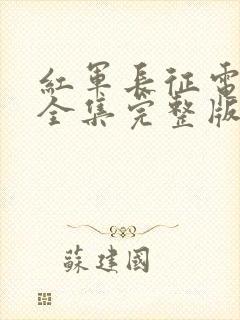 紅軍長征電
全集完整版
蘇建國